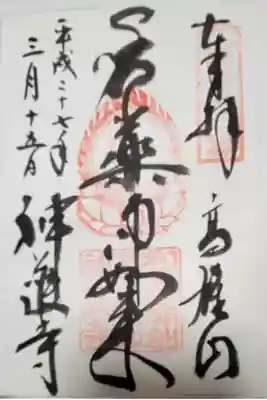 奉拝
高雄山
薬師如来
平成二十七年
三月十五日
神護寺